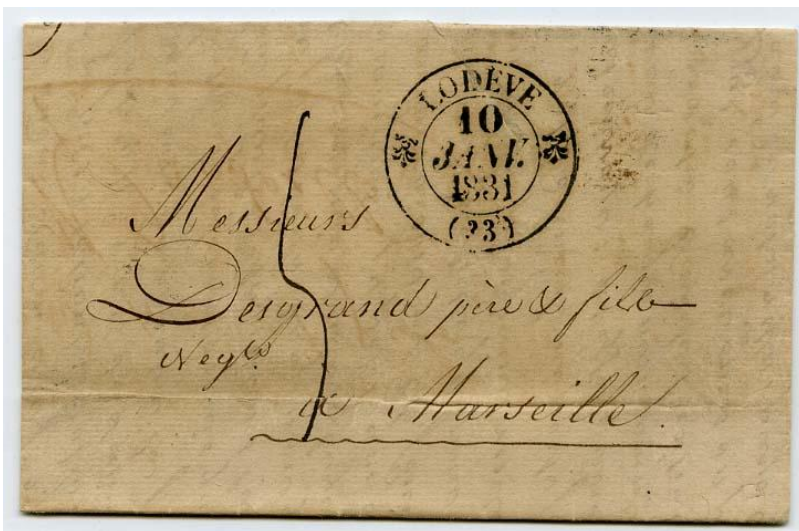 LODÈVE
10
JANV.
1831
(33)
Messieurs
Desgrand père & fils
Negts
à Marseille.
5